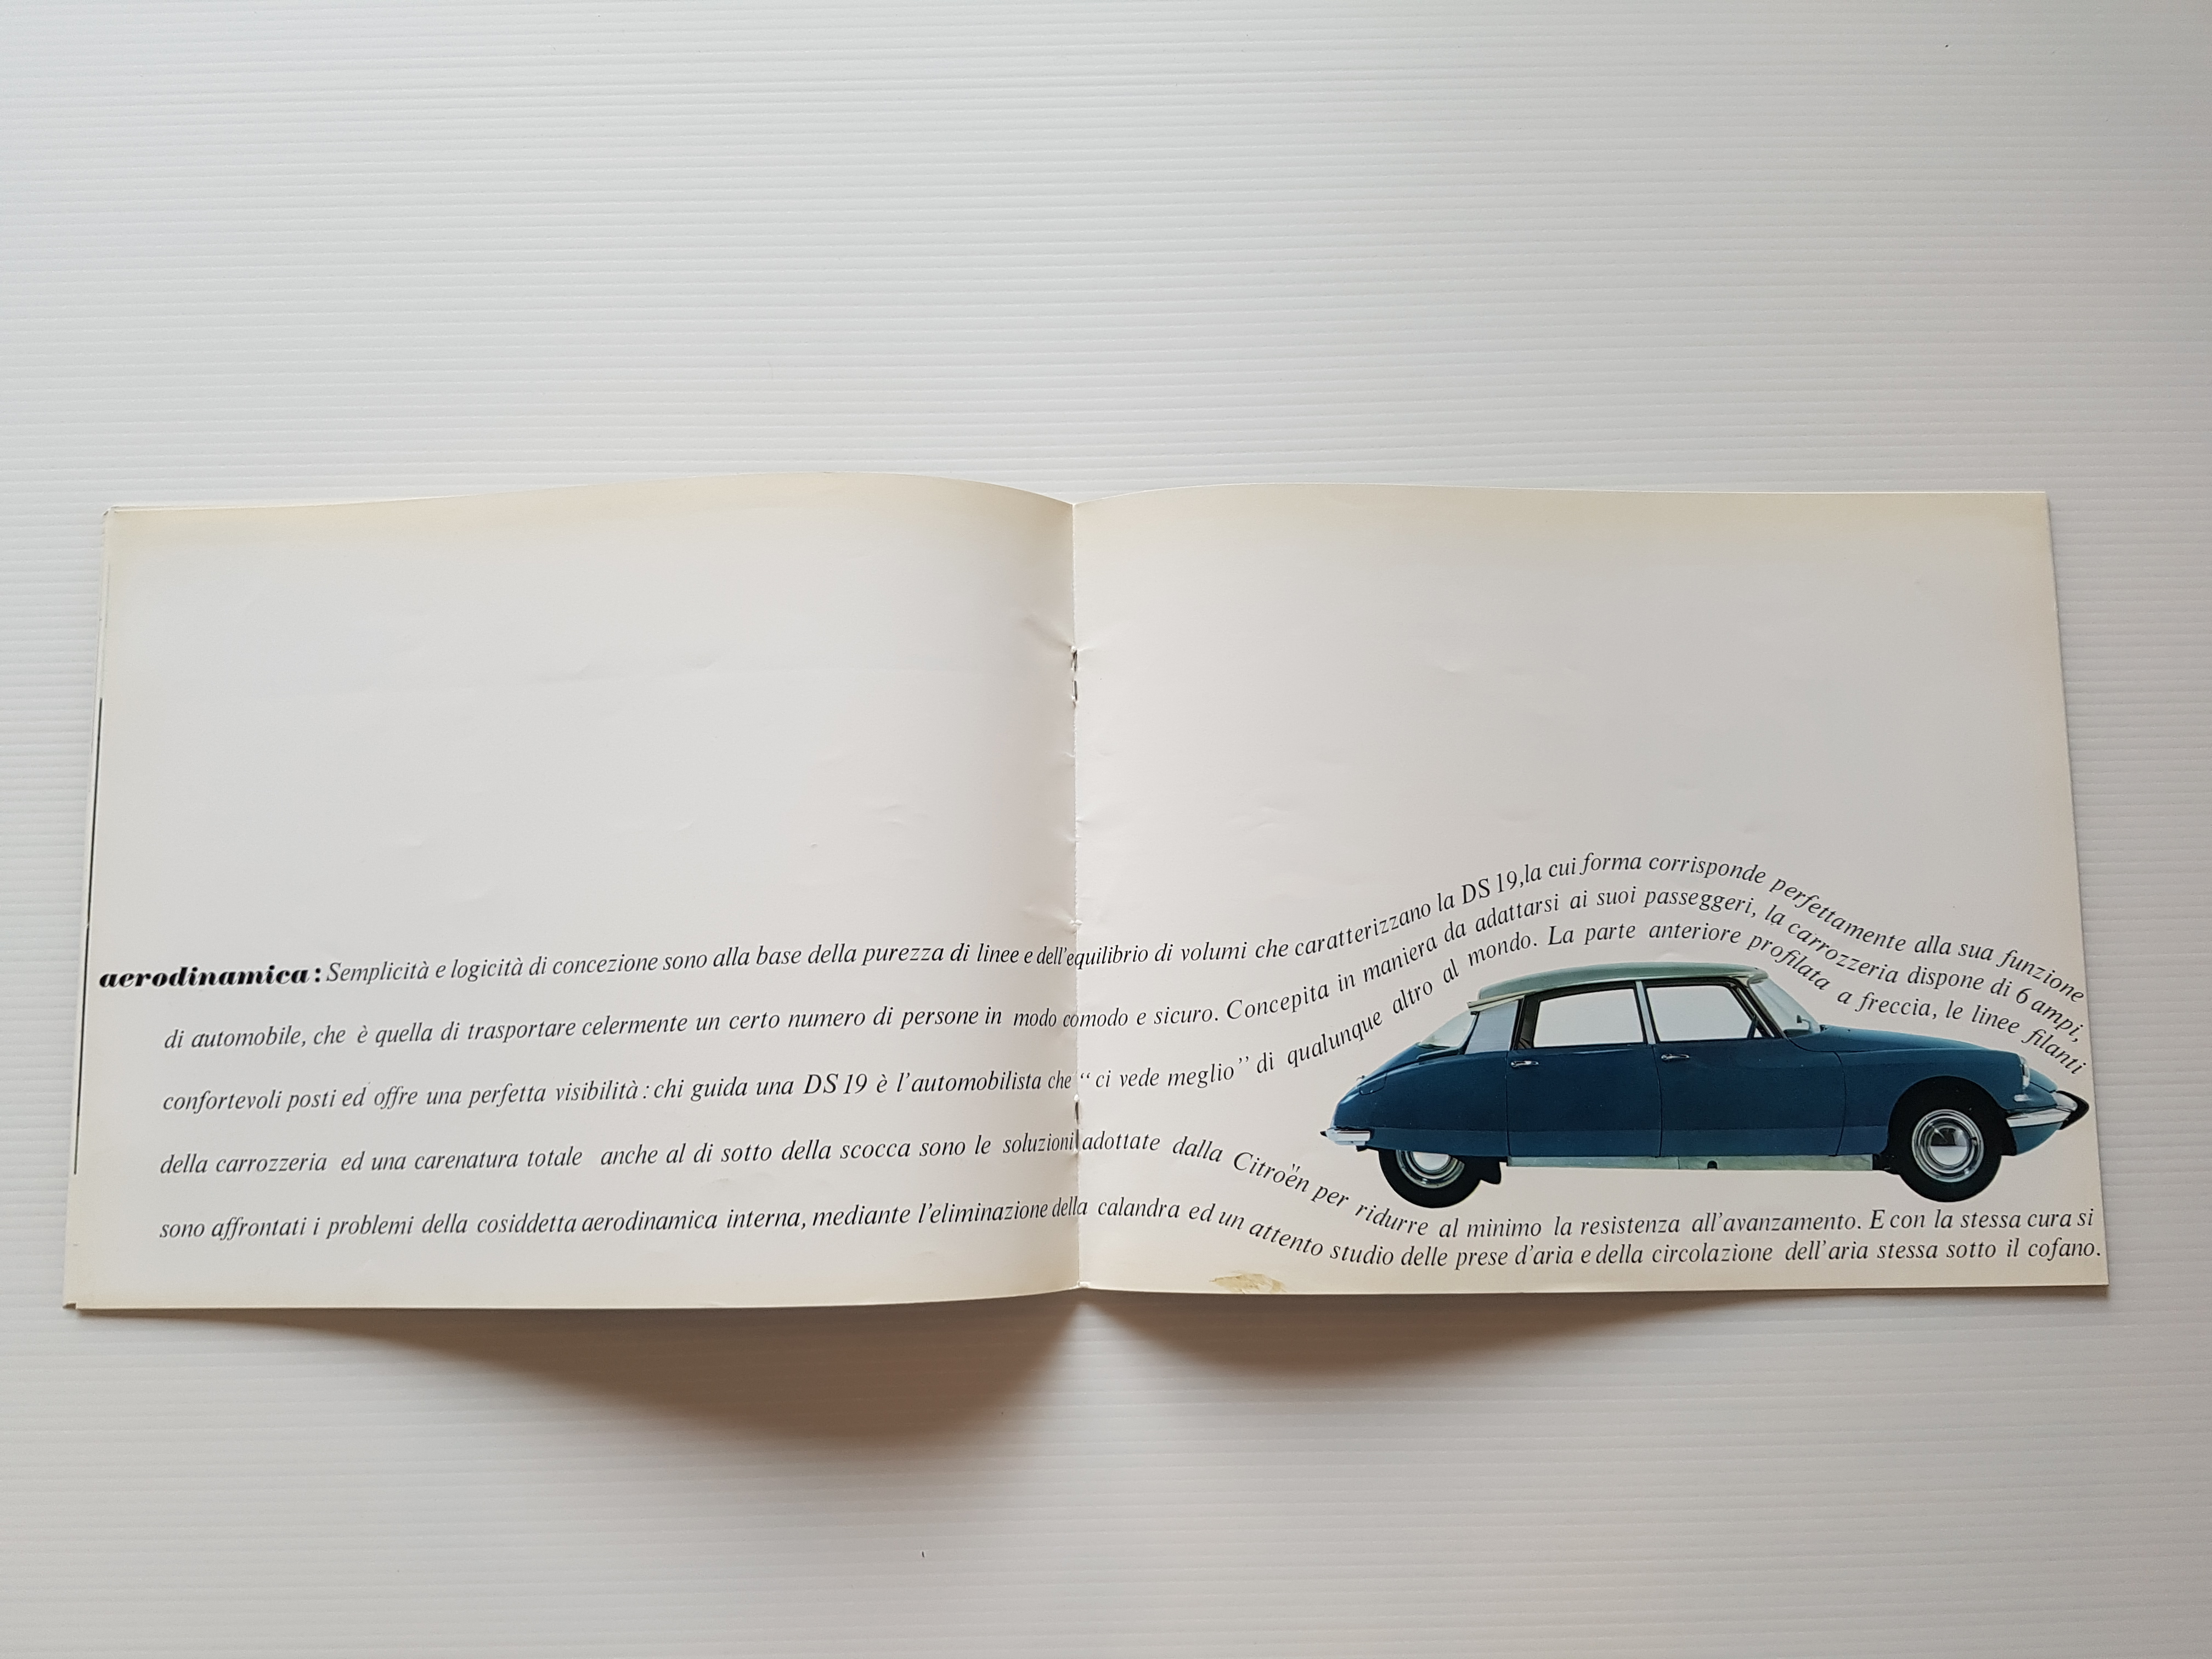 aerodinamica: Semplicità e logicità di concezione sono alla base della purezza di linee e dell'equilibrio di volumi che caratterizzano la DS 19, la cui forma corrisponde perfettamente alla sua funzione
di automobile, che è quella di trasportare celermente un certo numero di persone in modo comodo e sicuro. Concepita in maniera da adattarsi ai suoi passeggeri, la carrozzeria dispone di 6 ampi,
confortevoli posti ed offre una perfetta visibilità: chi guida una DS 19 è l'automobilista che “ci vede meglio” di qualunque altro al mondo. La parte anteriore profilata a freccia, le linee filanti
della carrozzeria ed una carenatura totale anche al di sotto della scocca sono le soluzioni adottate dalla Citroën per ridurre al minimo la resistenza all'avanzamento. E con la stessa cura si
sono affrontati i problemi della cosiddetta aerodinamica interna, mediante l'eliminazione della calandra ed un attento studio delle prese d'aria e della circolazione dell'aria stessa sotto il cofano.